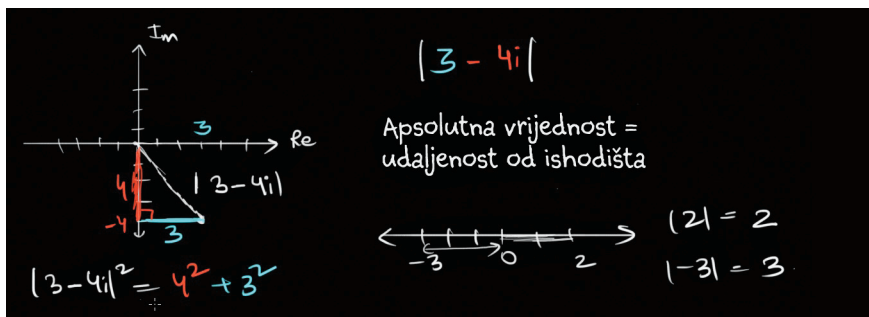 Im
3
Re
4
|3-4i|
-4
3
|3-4i|² = 4² + 3²
|3 - 4i|
Apsolutna vrijednost =
udaljenost od ishodišta
-3 0 2
|2| = 2
|-3| = 3